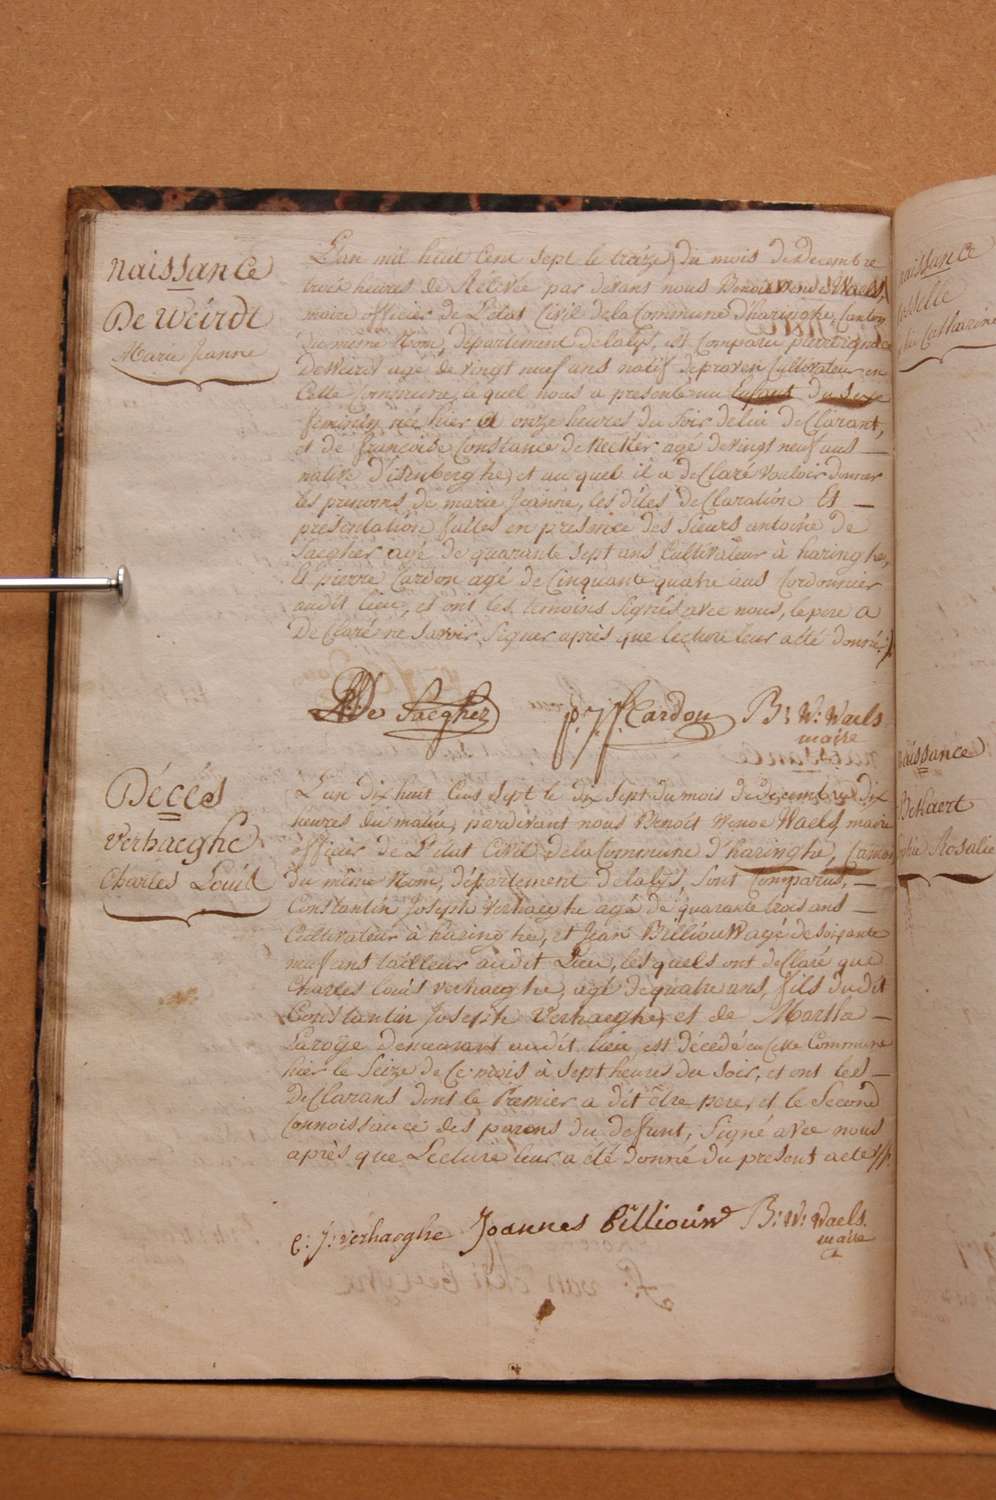 naissance
De Weirdt
Marie Jeanne
L'an mil huit Cent sept le treize du mois de Decembre
trois heures de Relevée par devant nous Benoit Wenoc Waels
maire officier de L'état Civil de la Commune d'haringhe, Canton
du même Nom, département de la lys, est Comparu pierre ignace
De Weirdt agé de vingt neuf ans natif de proven Cultivateur en
Cette Commune, le quel nous a presenté un Enfant du Sexe
feminin née hier a onze heures du soir de lui de Clarant,
et de françoise Constance de Necker agé de vingt neuf ans
native d'isenberghe, et auquel il a de Claré vouloir donner
les prenoms de marie Jeanne, les dites de Claration Et
presentation faites en presence des Sieurs antoine de
Saegher agé de quarante sept ans Cultivateur à haringhe,
Et pierre Cardon agé de Cinquante quatre ans Cordonnier
audit lieu, et ont les temoins signés avec nous, le pere a
De Claré ne savoir signer après que lecture leur a été donné
De Saegher
p. j. f. Cardon
B: W: Waels
maire
Décés
verhaeghe
Charles Louis
L'an dix huit Cens Sept le dix sept du mois de Decembre dix
heures du matin, pardevant nous Benoit Wenoc Waels maire
officier de L'état Civil de la Commune d'haringhe, Canton
du même Nom, département de la lys, sont Comparus,
Constantin Joseph verhaeghe agé de quarante trois ans
Cultivateur à haringhe, et Jean Billiouw agé de soixante
neuf ans tailleur audit Lieu, les quels ont de Claré que
Charles louis verhaeghe, agé de quatre ans, fils dudit
Constantin Joseph verhaeghe, et de Martha
Laroye demeurant audit lieu, est décédé en Cette Commune
hier le Seize de Ce mois à sept heures du soir, et ont les
de Clarans dont le Premier a dit être pere, et le Second
Connoissance des parens du defunt, signé avec nous
après que Lecture leur a été donné du present acte
C: J: verhaeghe
Joannes billiouw
B: W: Waels
maire
naissance
Catharine
naissance
Bekaert
Rosalie